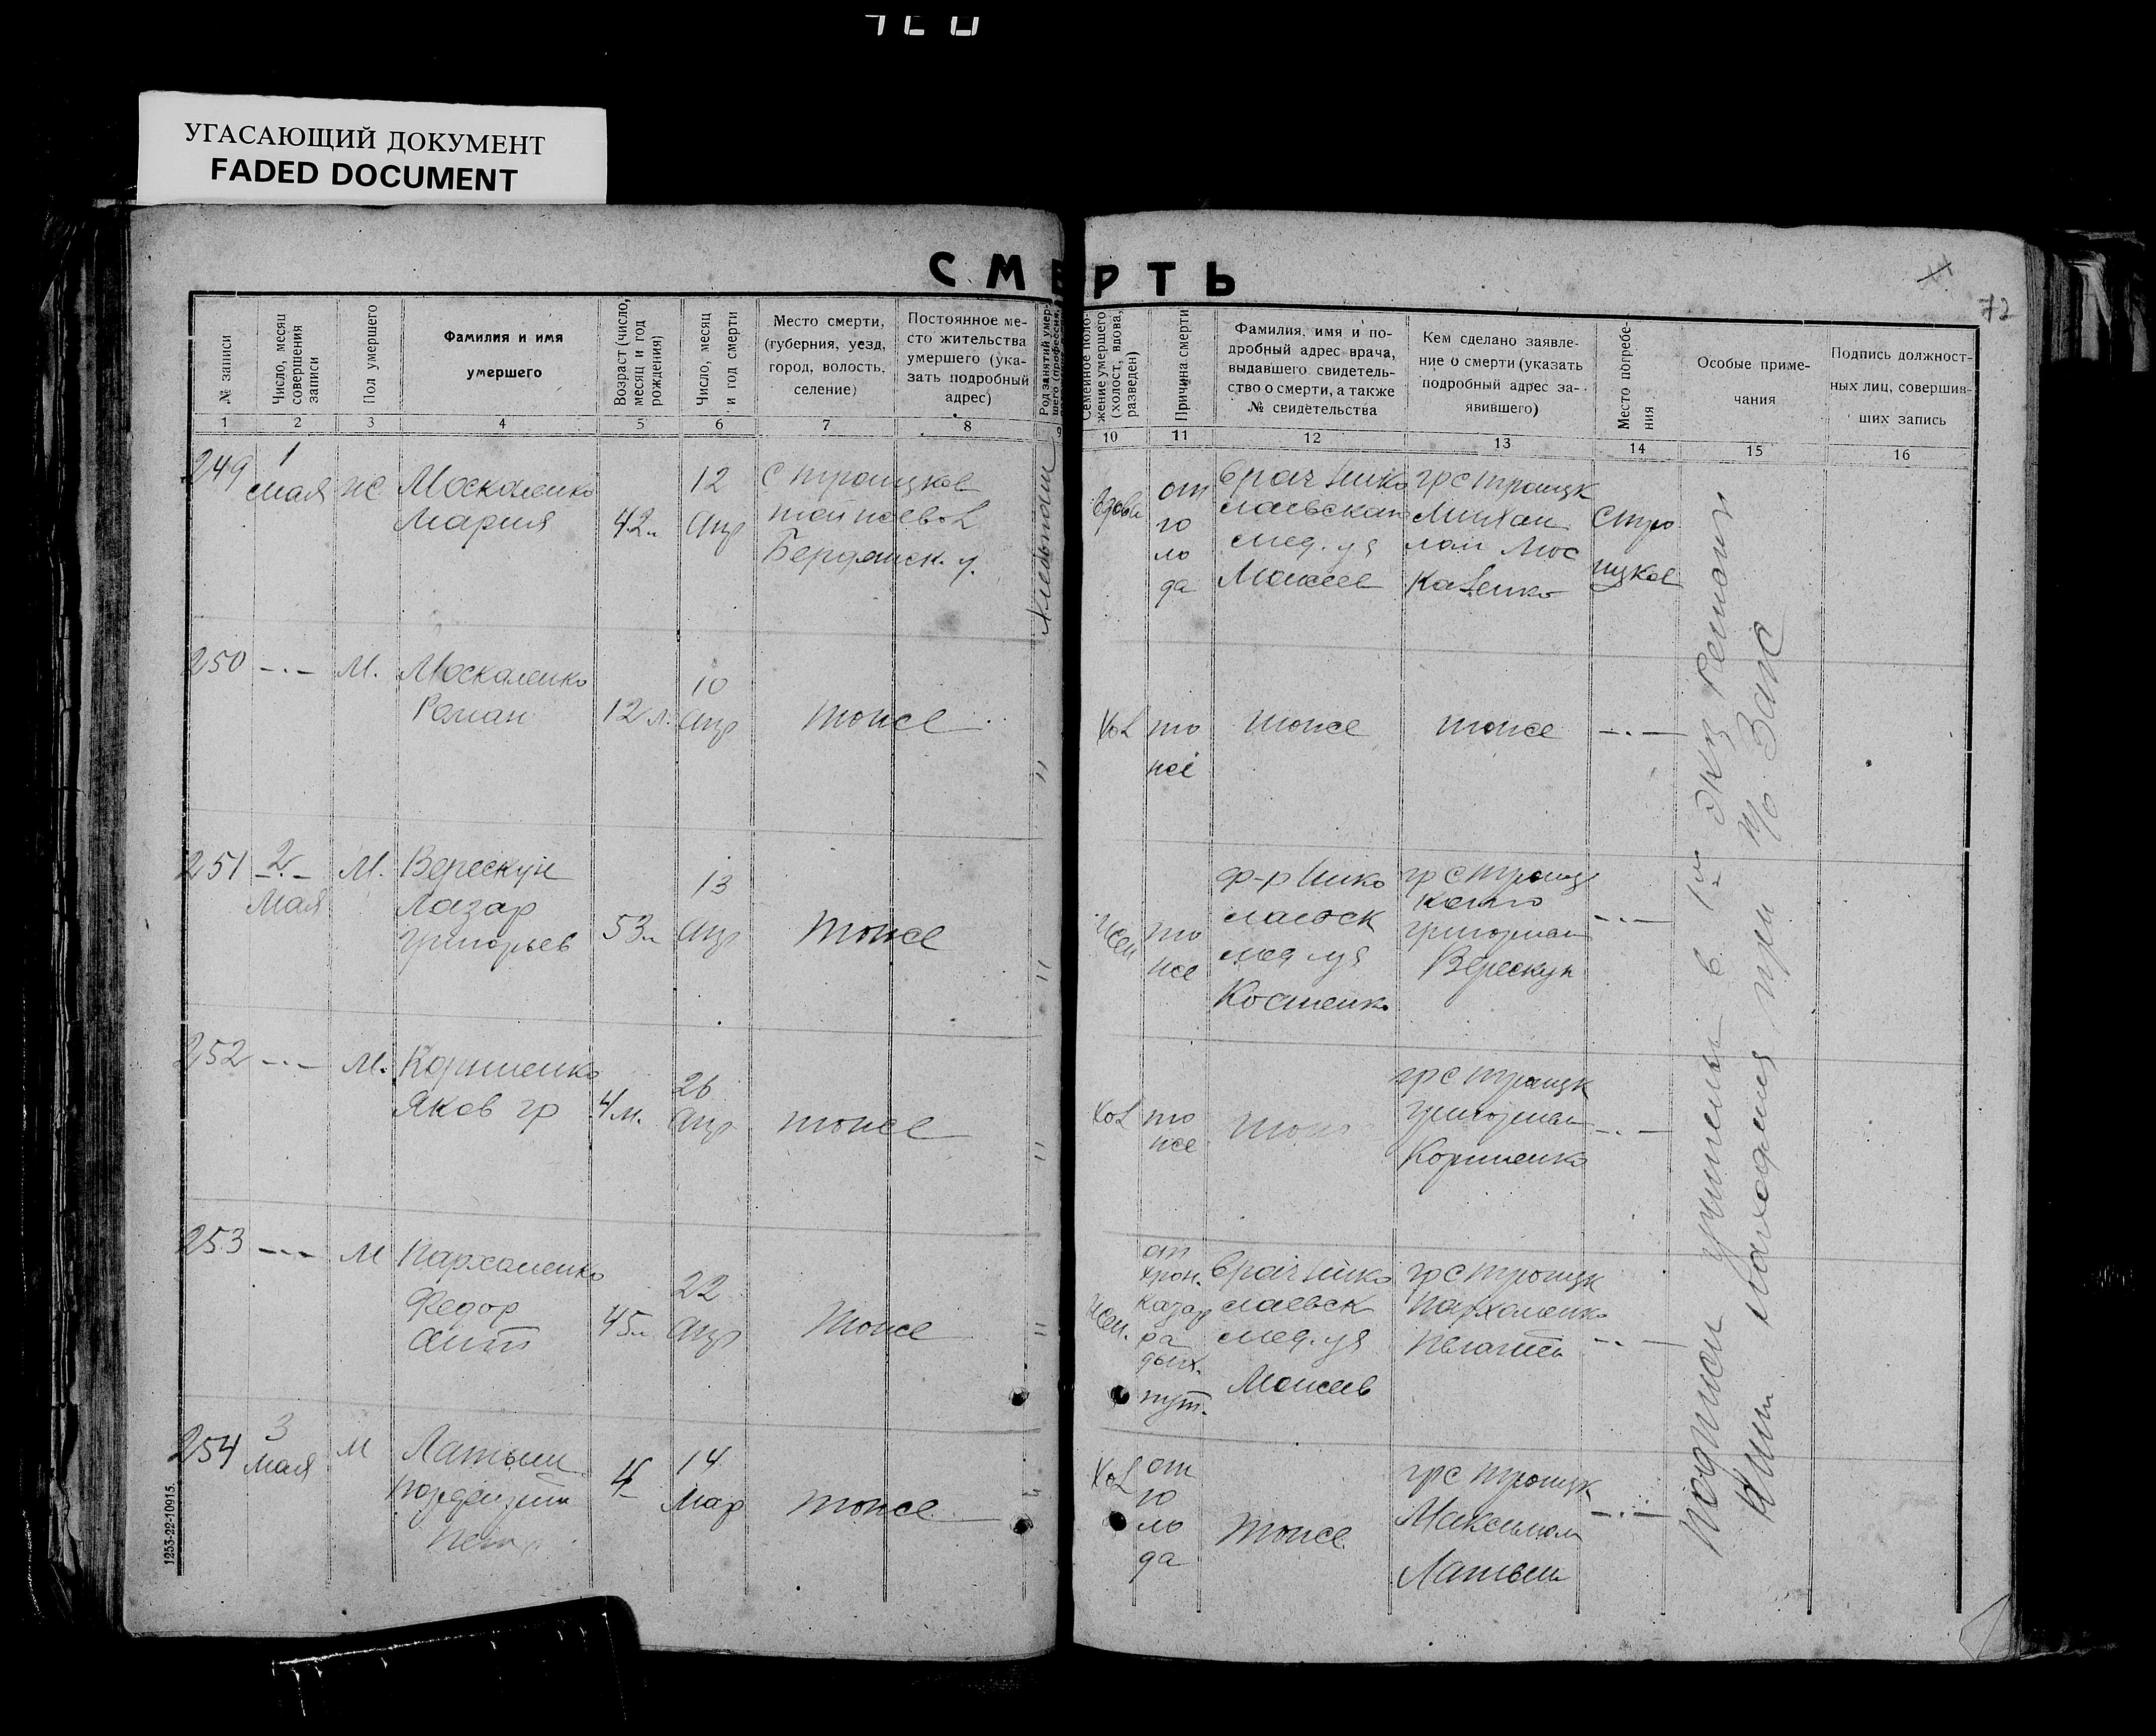 УГАСАЮЩИЙ ДОКУМЕНТ
FADED DOCUMENT
СМЕРТЬ
72
№ записи
Число, месяц совершения записи
Пол умершего
Фамилия и имя
умершего
Возраст (число, месяц и год рождения)
Число, месяц и год смерти
Место смерти,
(губерния, уезд,
город, волость,
селение)
Постоянное ме-
сто жительства
умершего (ука-
зать подробный
адрес)
Род занятий умер-
шего (профессия,
Семейное поло-
жение умершего
(холост, вдова,
разведен)
Причина смерти
Фамилия, имя и по-
дробный адрес врача,
выдавшего свидетель-
ство о смерти, а также
№ свидетельства
Кем сделано заявле-
ние о смерти (указать
подробный адрес за-
явившего)
Место погребе-
ния
Особые приме-
чания
Подпись должност-
ных лиц, совершив-
ших запись
1 2 3 4 5 6 7 8 9 10 11 12 13 14 15 16
249 1 мая ж
Москаленко
Мария
42 л
12 Апр
с Троицкое
тойже вол
Бердянск. у.
Вдова
от го ло да
врач Нико
лаевская
мед. уч
Моисеев
гр с Троицк
Михаи
лом Мос
каленко
С Тро
ицкое
250 -.- М.
Москаленко
Роман
12 л.
10 Апр
тоже
хол
то же
тоже
тоже
-.-
251 2 Мая М.
Верескун
Лазар
Григорьев
53 л
13 Апр
тоже
"
жен
то же
ф-р Нико
лаевск
мед уч
Костенко
гр с Троиц
кого
Григорием
Верескун
-.-
252 -.- М.
Корниенко
Яков гр
4 м.
26 Апр
тоже
"
хол
то же
тоже
гр с Троицк
Григорием
Корниенко
-.-
253 -.- М
Пархоменко
Федор
Ант
45 л
22 Апр
тоже
"
жен.
от хрон. катар ра дых. пут.
врач Нико
лаевск
мед. уч
Моисеев
гр с Троицк
Пархоменко
-.-
254 3 мая М
Латыш
4
14 Мар
тоже
"
хол
от го ло да
тоже
гр с Троицк
Максимом
Латыш
-.-
Подписи учинены в 1м экз
находится при
1253-22-10915.